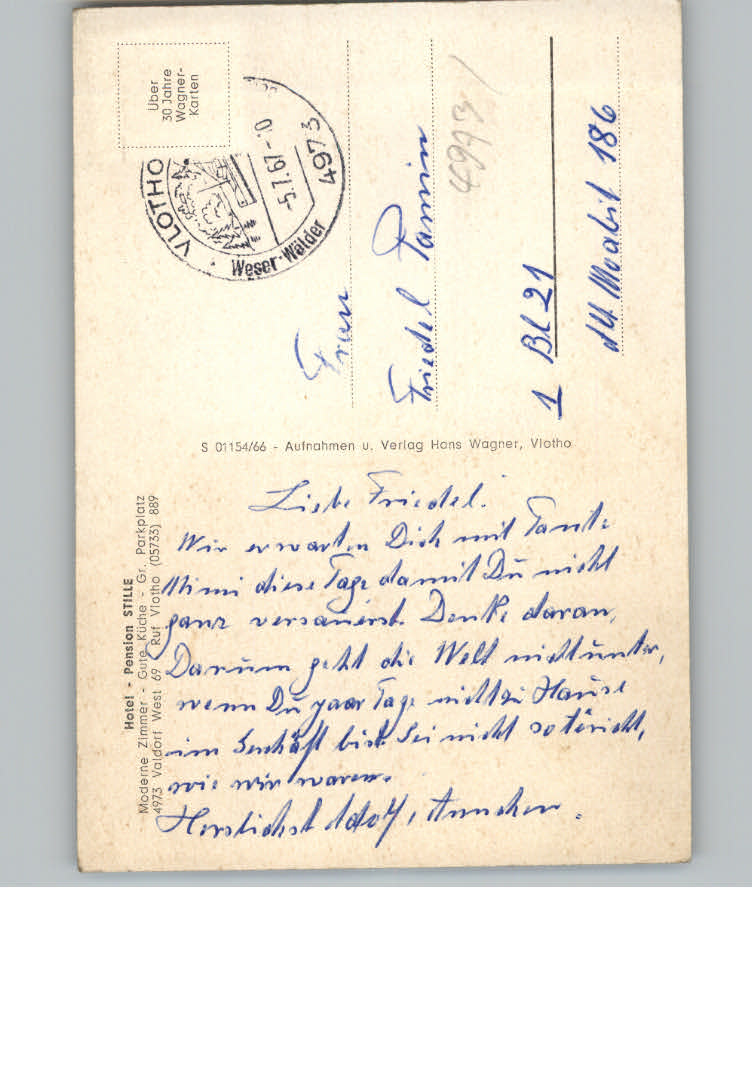 Hotel - Pension STILLE
Moderne Zimmer - Gute Küche - Gr. Parkplatz
4973 Valdorf West 69 Ruf Vlotho (05733) 889
Liebe Friedel.
Wir erwarten Dich mit Tante
Mimi diese Tage damit Du nicht
ganz versauerst. Denke daran,
Darum geht die Welt nicht unter,
wenn Du paar Tage nicht zu Hause
im Geschäft bist. Sei nicht so töricht,
wie wir waren.
Herzlichst Adolf, Annchen.
S 01154/66 - Aufnahmen u. Verlag Hans Wagner, Vlotho
Über
30 Jahre
Wagner-
Karten
VLOTHO
-5.7.67-
4973
Weser-Wälder
Frau
Friedel
4973
1 Bl 21
Alt Moabit 186